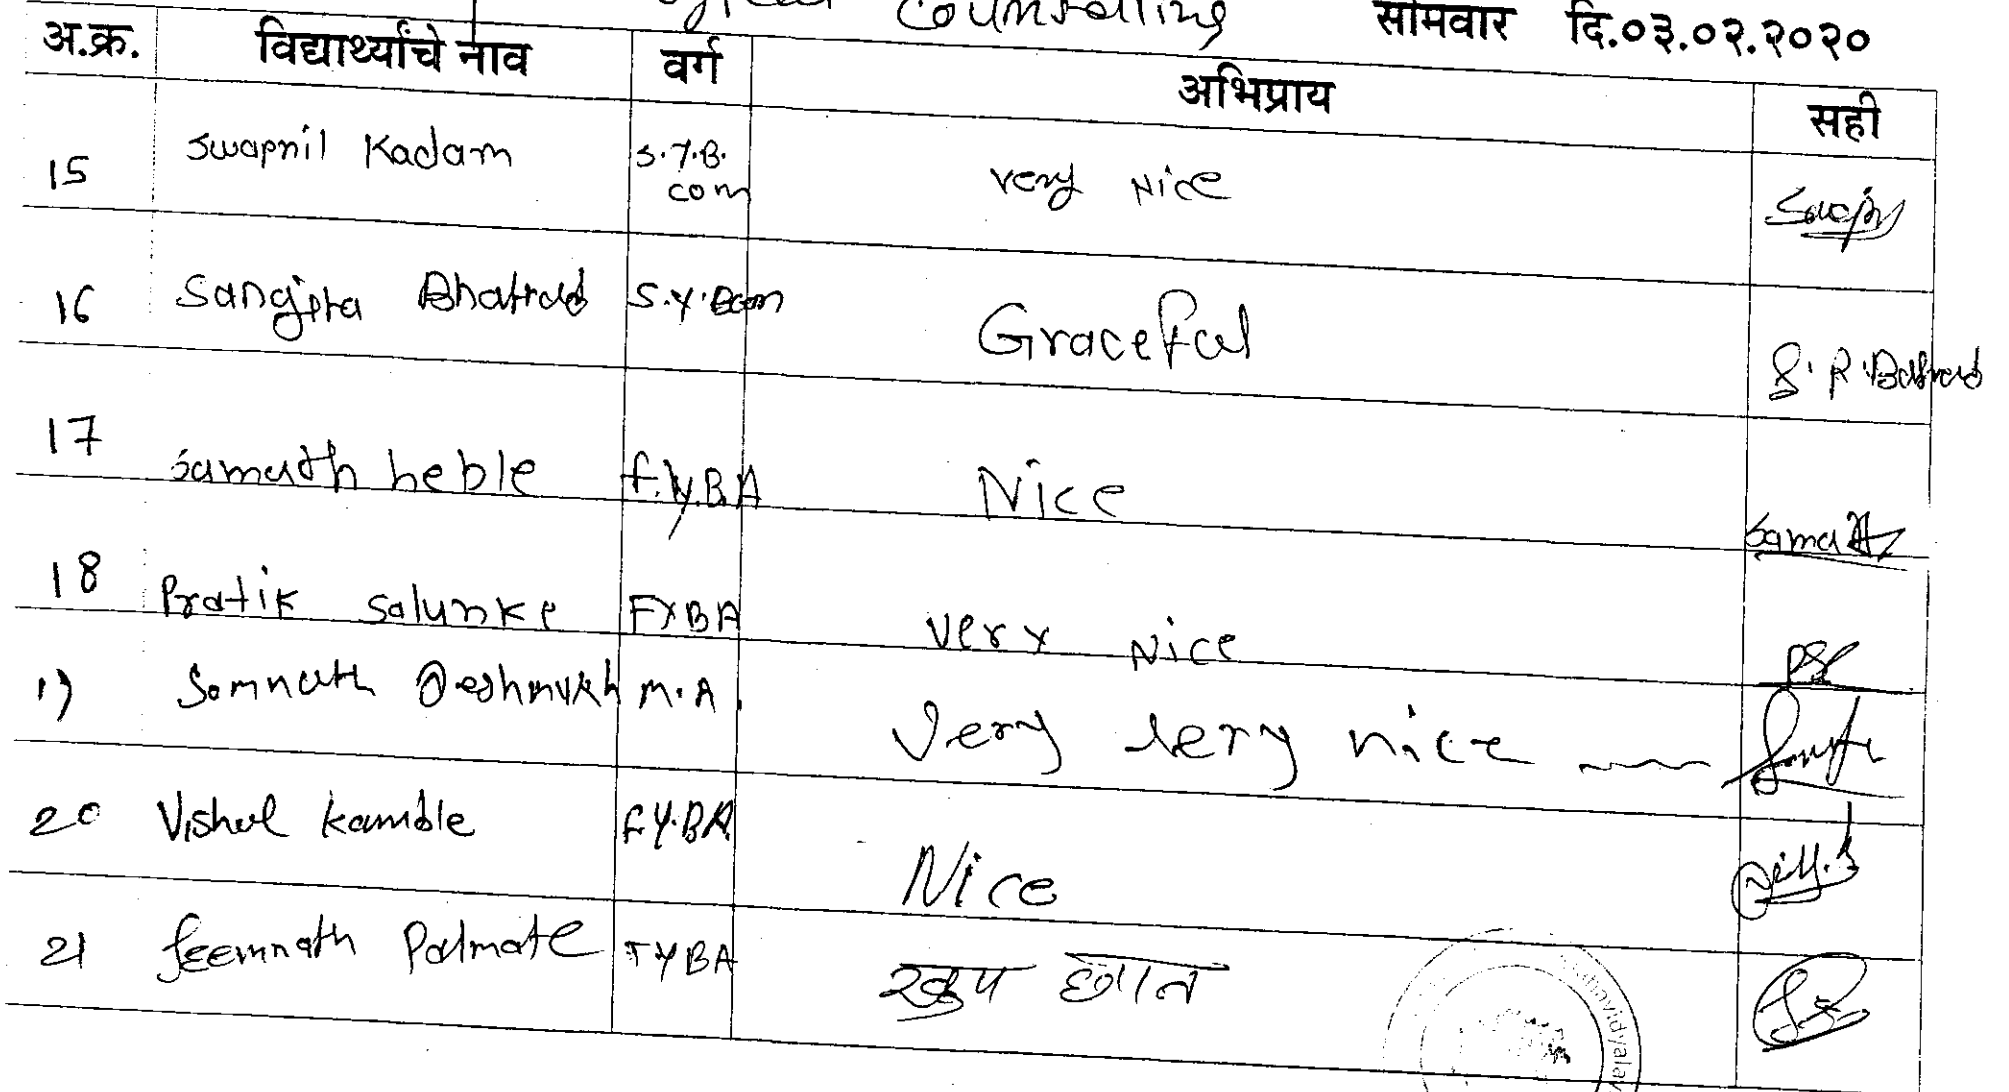 Counselling सोमवार दि.०३.०२.२०२०
अ.क्र. विद्यार्थ्यांचे नाव वर्ग अभिप्राय सही
15 Swapnil Kadam S.Y.B. very Nice
com
16 Sangita S.Y.Bcom Graceful S.R.
17 Samarth heble F.Y.BA Nice Samarth
18 Pratik Salunke FYBA Very Nice
19 Somnath Deshmukh M.A Very very nice
20 Vishal Kamble F.Y.BA Nice
21 Palmate TYBA खुप छान